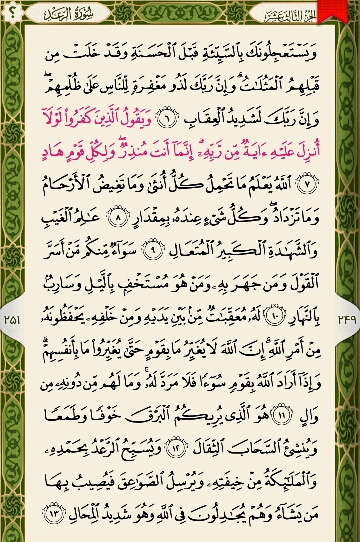 سُورَةُ الرَّعْد
الجزء الثالث عشر
؟
وَيَسْتَعْجِلُونَكَ بِالسَّيِّئَةِ قَبْلَ الْحَسَنَةِ وَقَدْ خَلَتْ مِن
قَبْلِهِمُ الْمَثُلَاتُ ۗ وَإِنَّ رَبَّكَ لَذُو مَغْفِرَةٍ لِّلنَّاسِ عَلَىٰ ظُلْمِهِمْ ۖ
وَإِنَّ رَبَّكَ لَشَدِيدُ الْعِقَابِ ﴿٦﴾ وَيَقُولُ الَّذِينَ كَفَرُوا لَوْلَا
أُنزِلَ عَلَيْهِ ءَايَةٌ مِّن رَّبِّهِ ۗ إِنَّمَا أَنتَ مُنذِرٌ ۖ وَلِكُلِّ قَوْمٍ هَادٍ
﴿٧﴾ اللَّهُ يَعْلَمُ مَا تَحْمِلُ كُلُّ أُنثَىٰ وَمَا تَغِيضُ الْأَرْحَامُ
وَمَا تَزْدَادُ ۖ وَكُلُّ شَيْءٍ عِندَهُ بِمِقْدَارٍ ﴿٨﴾ عَالِمُ الْغَيْبِ
وَالشَّهَادَةِ الْكَبِيرُ الْمُتَعَالِ ﴿٩﴾ سَوَاءٌ مِّنكُم مَّنْ أَسَرَّ
الْقَوْلَ وَمَن جَهَرَ بِهِ وَمَنْ هُوَ مُسْتَخْفٍ بِالَّيْلِ وَسَارِبٌ
بِالنَّهَارِ ﴿١٠﴾ لَهُ مُعَقِّبَاتٌ مِّن بَيْنِ يَدَيْهِ وَمِنْ خَلْفِهِ يَحْفَظُونَهُ
مِنْ أَمْرِ اللَّهِ ۗ إِنَّ اللَّهَ لَا يُغَيِّرُ مَا بِقَوْمٍ حَتَّىٰ يُغَيِّرُوا مَا بِأَنفُسِهِمْ ۗ
وَإِذَا أَرَادَ اللَّهُ بِقَوْمٍ سُوءًا فَلَا مَرَدَّ لَهُ ۚ وَمَا لَهُم مِّن دُونِهِ مِن
وَالٍ ﴿١١﴾ هُوَ الَّذِي يُرِيكُمُ الْبَرْقَ خَوْفًا وَطَمَعًا
وَيُنشِئُ السَّحَابَ الثِّقَالَ ﴿١٢﴾ وَيُسَبِّحُ الرَّعْدُ بِحَمْدِهِ
وَالْمَلَائِكَةُ مِنْ خِيفَتِهِ وَيُرْسِلُ الصَّوَاعِقَ فَيُصِيبُ بِهَا
مَن يَشَاءُ وَهُمْ يُجَادِلُونَ فِي اللَّهِ وَهُوَ شَدِيدُ الْمِحَالِ ﴿١٣﴾
٢٥١
٢٤٩